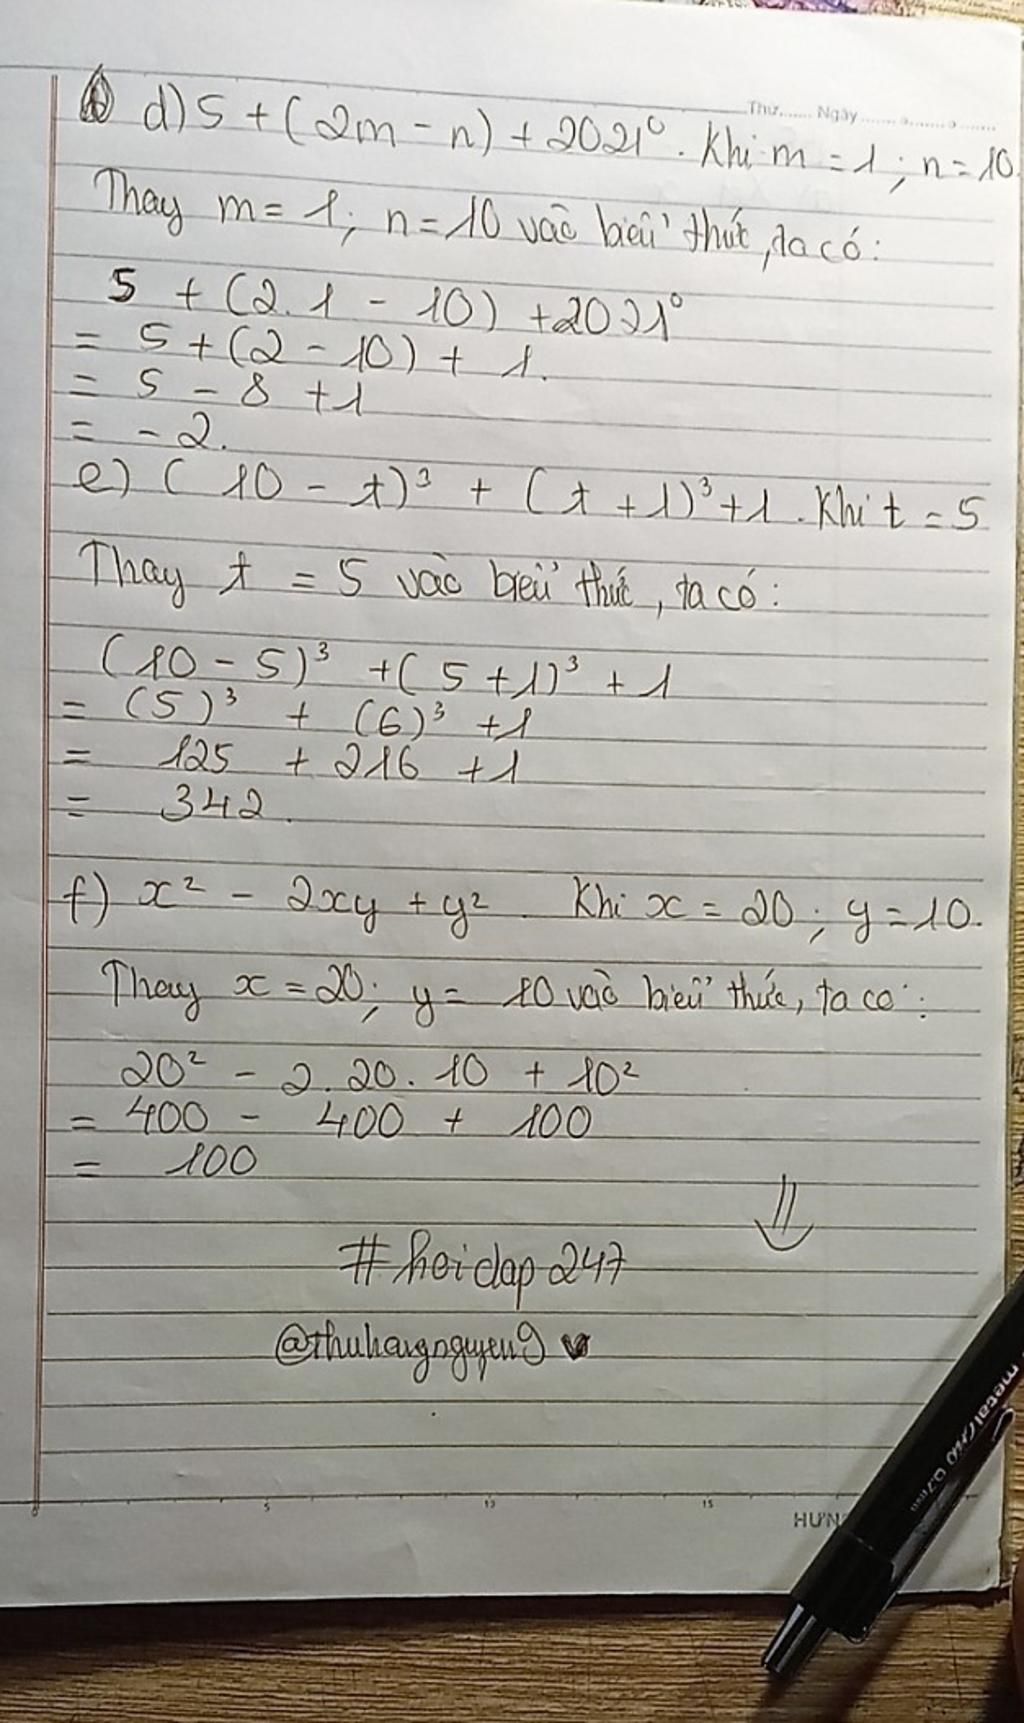 Thứ...... Ngày ...... ........ ......
d) 5 + (2m - n) + 2021⁰. Khi m = 1; n = 10.
Thay m = 1; n = 10 vào biểu thức, ta có:
5 + (2.1 - 10) + 2021⁰
= 5 + (2 - 10) + 1.
= 5 - 8 + 1
= - 2.
e) (10 - t)³ + (t + 1)³ + 1. Khi t = 5
Thay t = 5 vào biểu thức, ta có:
(10 - 5)³ + (5 + 1)³ + 1
= (5)³ + (6)³ + 1
= 125 + 216 + 1
= 342.
f) x² - 2xy + y². Khi x = 20; y = 10.
Thay x = 20; y = 10 vào biểu thức, ta có:
20² - 2.20.10 + 10²
= 400 - 400 + 100
= 100
# hoidap 247
@thuhangnguyen9
5 10 15